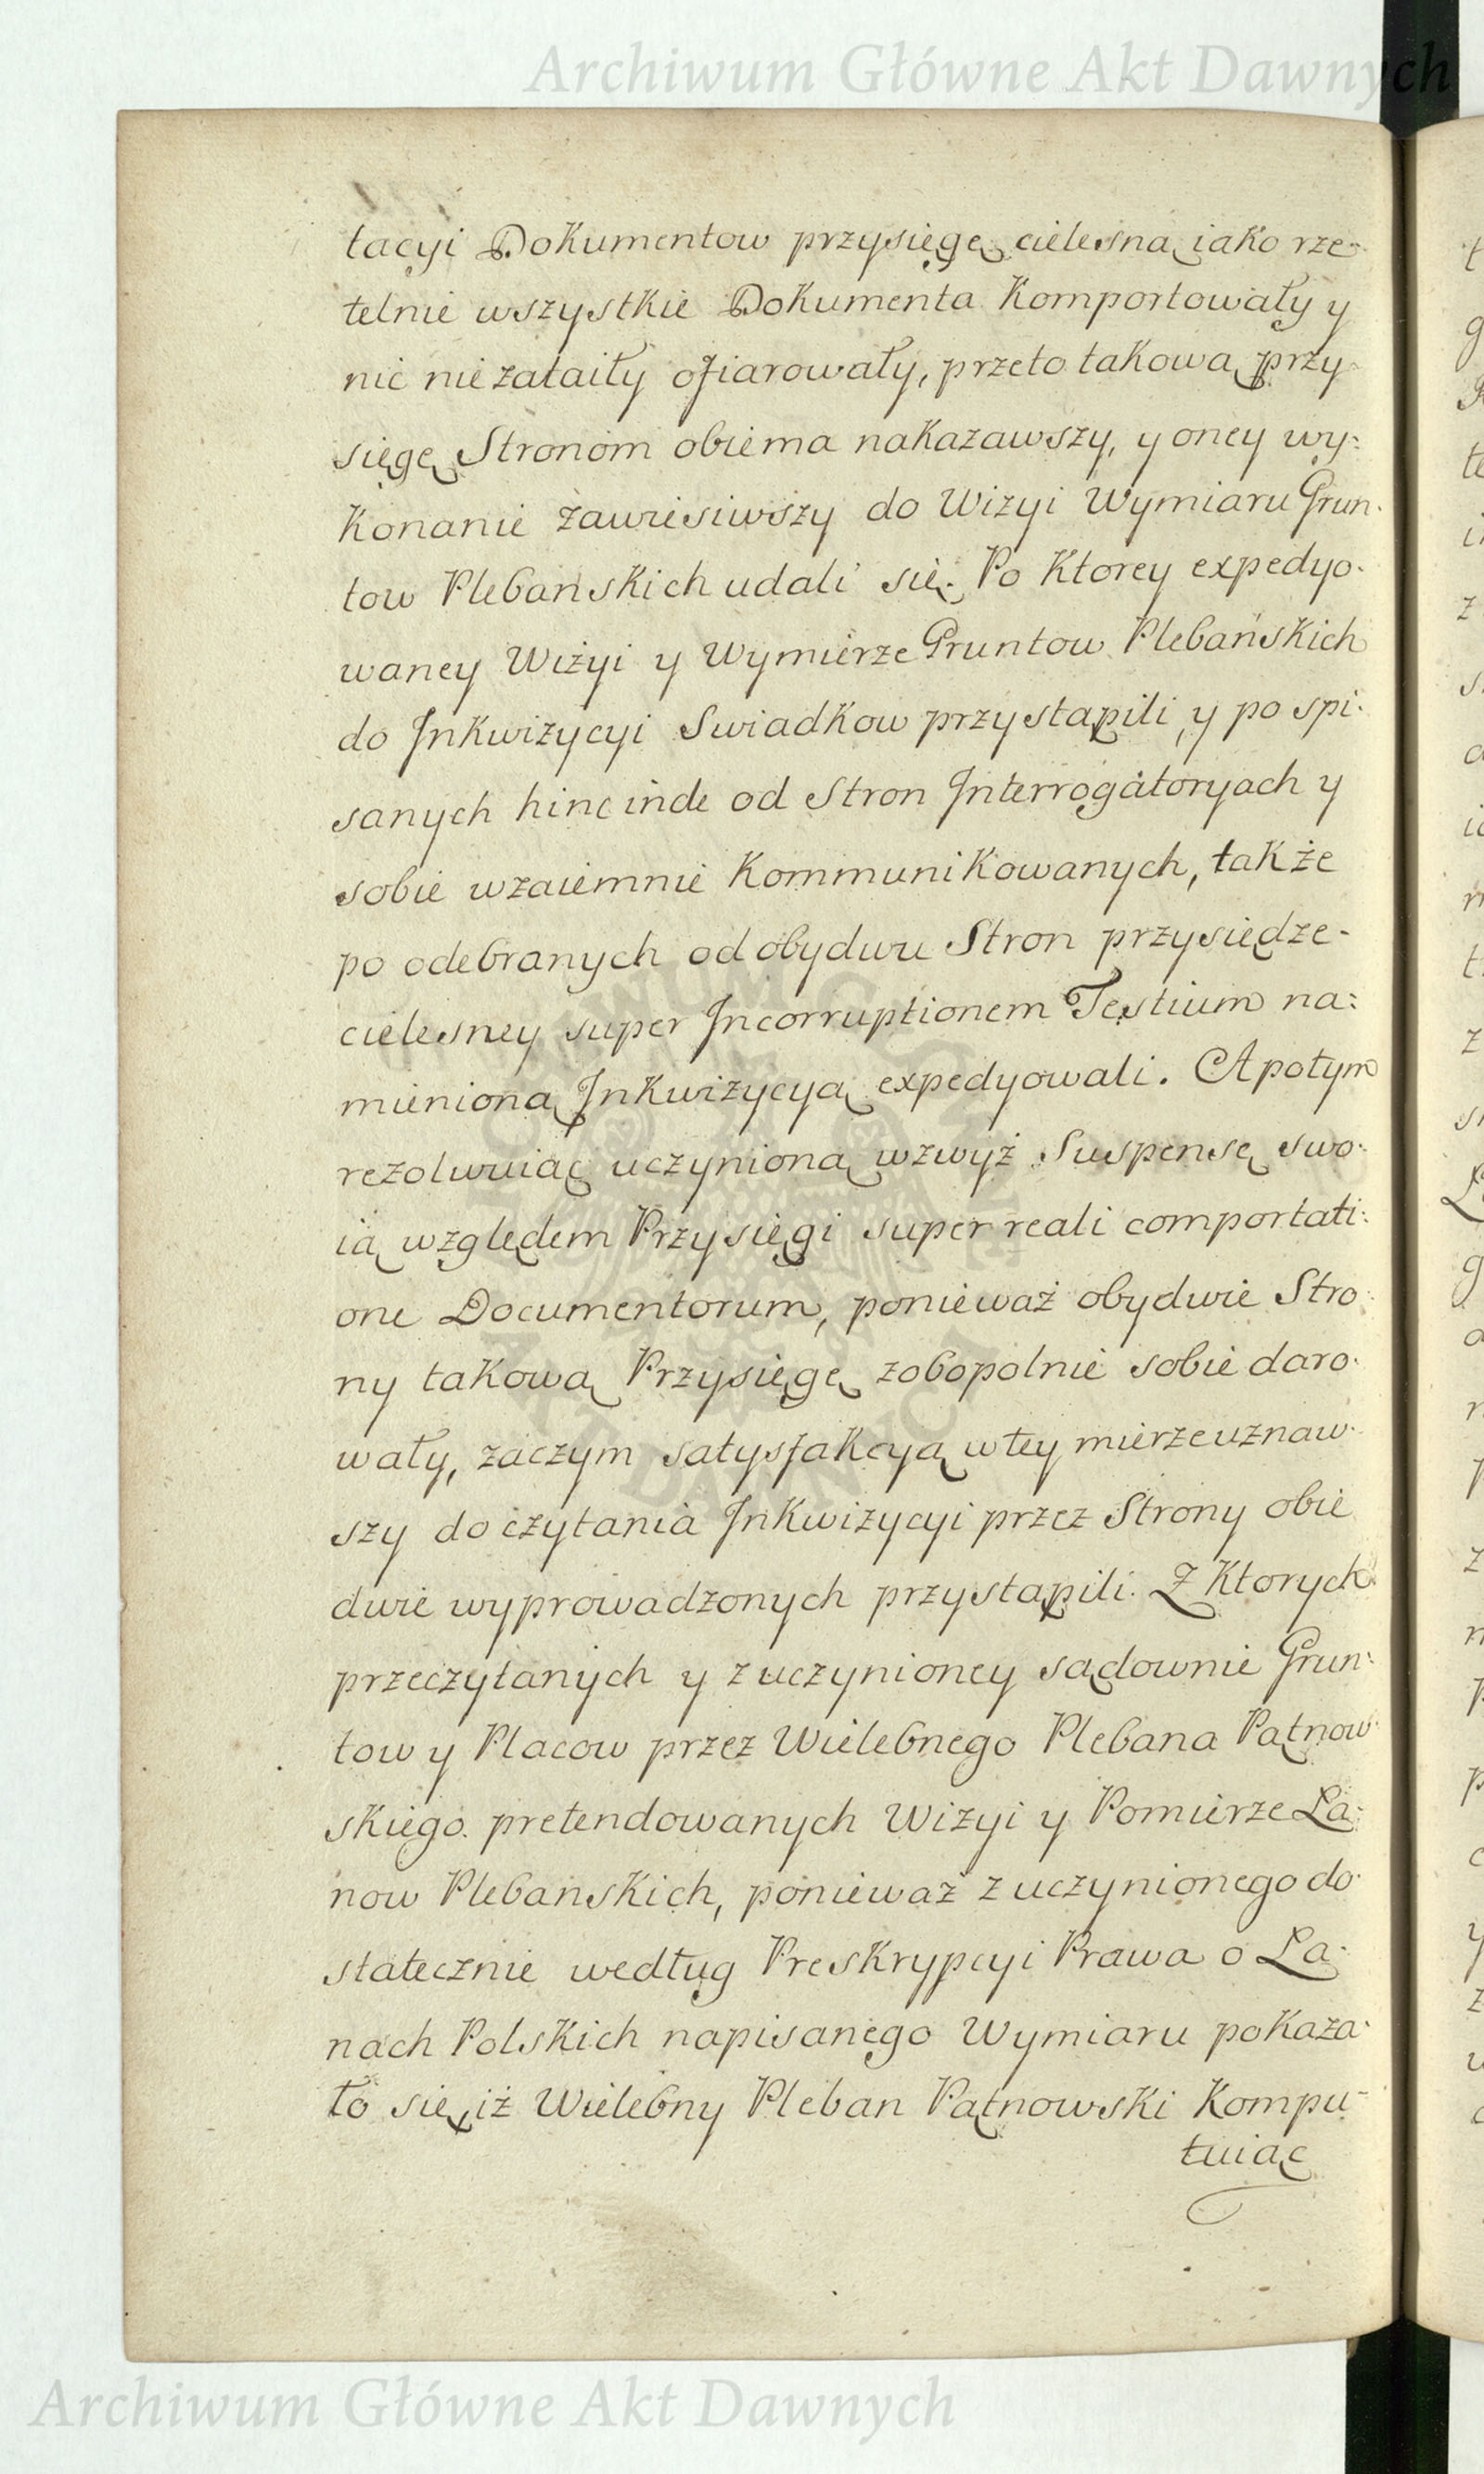 Archiwum Główne Akt Dawnych
tacyi Dokumentow przysięgę cielesną iako rze-
telnie wszystkie Dokumenta Komportowały y
nic nie zataiły ofiarowały, przeto takową przy-
sięgę Stronom obiema nakazawszy, y oney wy:
Konanie zawiesiwszy do Wizyi Wymiaru Grun.
tow Plebańskich udali się. Po Ktorey expedyo.
waney Wizyi y Wymierze Gruntow Plebańskich
do Inkwizycyi Swiadkow przystąpili, y po spi.
sanych hinc inde od Stron Interrogatoryach y
sobie wzaiemnie Kommunikowanych, także
po odebranych od obydwu Stron przysiędze-
cielesney super Incorruptionem Testium na:
mienioną Inkwizycyą expedyowali. A potym
rezolwuiąc uczynioną wzwyż Suspensę swo.
ią względem Przysięgi super reali comportati:
one Documentorum, ponieważ obydwie Stro.
ny takową Przysięgę zobopolnie sobie daro.
wały, zaczym satysfakcyą w tey mierze uznaw.
szy do czytania Inkwizycyi przez Strony obie
dwie wyprowadzonych przystąpili. Z Ktorych
przeczytanych y z uczynioney sądownie Grun:
tow y Placow przez Wielebnego Plebana Pątnow.
skiego. pretendowanych Wizyi y Pomierze La:
now Plebańskich, ponieważ z uczynionego do.
statecznie według Preskrypcyi Prawa o La.
nach Polskich napisanego Wymiaru pokaza.
ło się, iż Wielebny Pleban Pątnowski Kompu-
tuiąc
Archiwum Główne Akt Dawnych